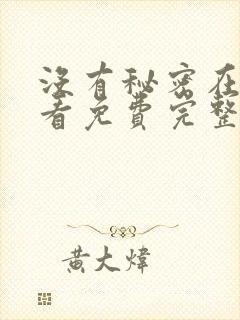 没有秘密在
看免费完整
黄大炜